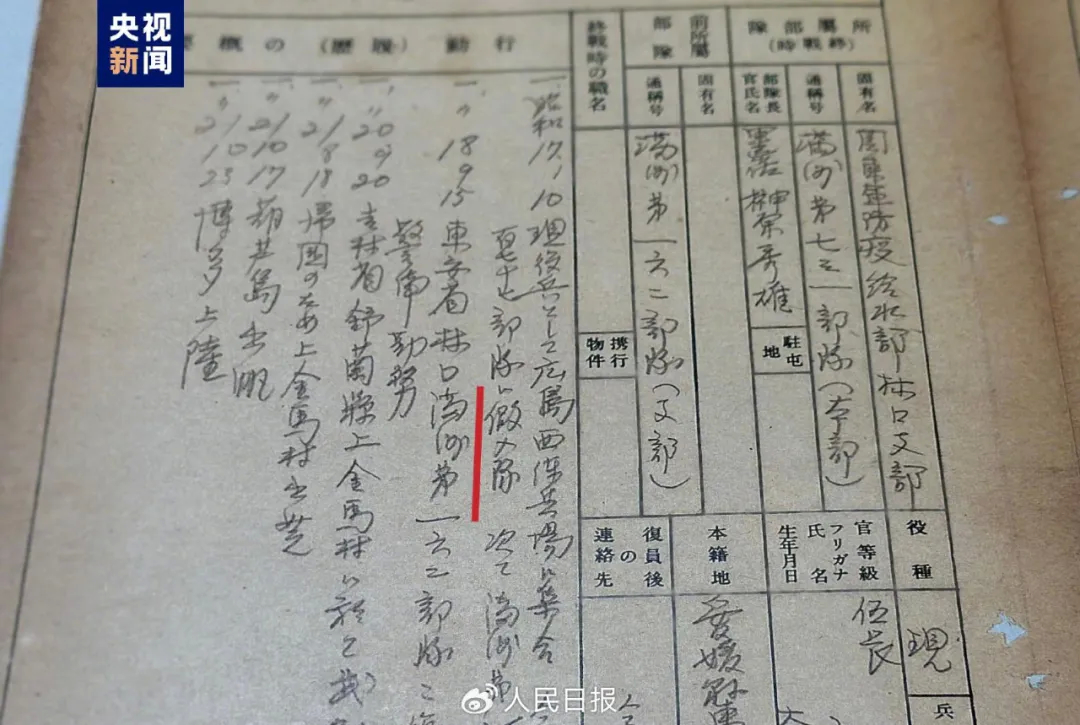 央视
新闻
所屬部隊
(終戰時)
固有名
関東軍防疫給水部林口支部
通稱号
満洲第七三一部隊(本部)
部隊長
官氏名
榊原秀雄
駐屯
地
前所屬
部隊
固有名
通稱号
満洲第一六二部隊(支部)
終戰時の職名
携行
物件
役種
現
兵
官等級
伍長
フリガナ
氏名
生年月日
本籍地
愛媛縣
復員後
の
連絡先
行動(履歴)の概要
一、昭和17.10 現役兵として広島西練兵場に集合
部隊に仮入隊 次で満洲第
一、〃 18 9 15 東安省林口満洲第一六二部隊
警備勤務
一、〃 20 9 20 吉林省舒蘭縣上金馬村
一、〃 21 8 18 帰国のため上金馬村出発
一、〃 21 10 17 葫芦島出帆
一、〃 21 10 23 博多上陸
人民日报